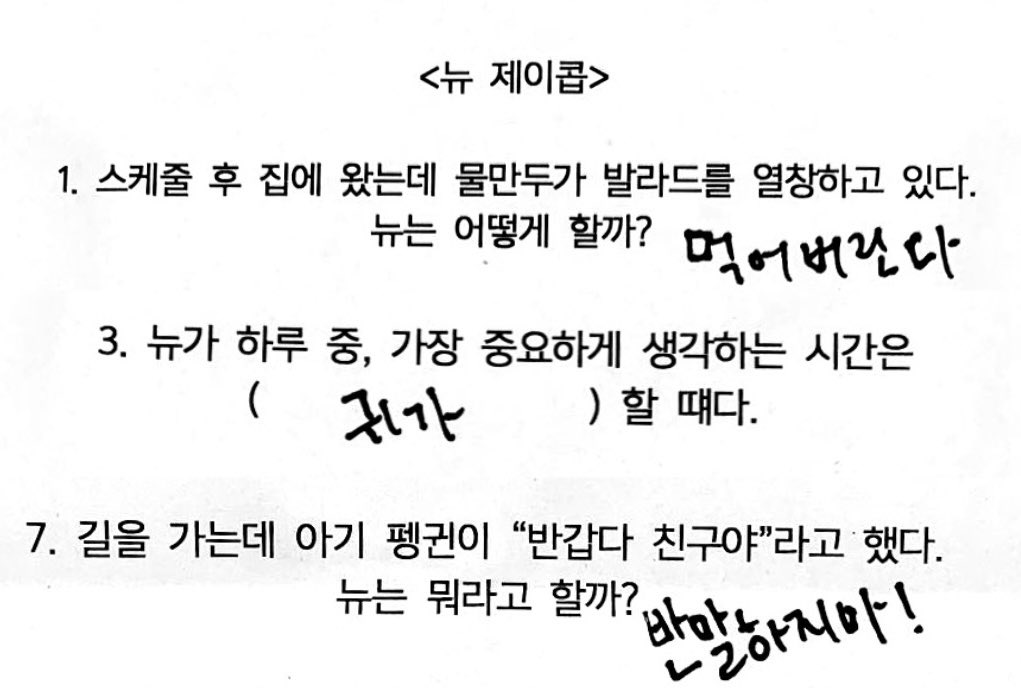 <뉴 제이콥>
1. 스케줄 후 집에 왔는데 물만두가 발라드를 열창하고 있다.
뉴는 어떻게 할까? 먹어버린다
3. 뉴가 하루 중, 가장 중요하게 생각하는 시간은
( 귀가 ) 할 떄다.
7. 길을 가는데 아기 펭귄이 “반갑다 친구야”라고 했다.
뉴는 뭐라고 할까? 반말하지마!